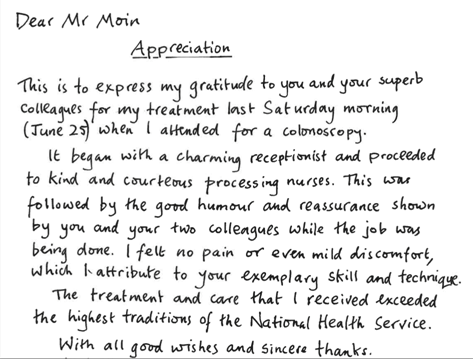 Dear Mr Moin
Appreciation
This is to express my gratitude to you and your superb
colleagues for my treatment last Saturday morning
(June 25) when I attended for a colonoscopy.
It began with a charming receptionist and proceeded
to kind and courteous processing nurses. This was
followed by the good humour and reassurance shown
by you and your two colleagues while the job was
being done. I felt no pain or even mild discomfort,
which I attribute to your exemplary skill and technique.
The treatment and care that I received exceeded
the highest traditions of the National Health Service.
With all good wishes and sincere thanks.